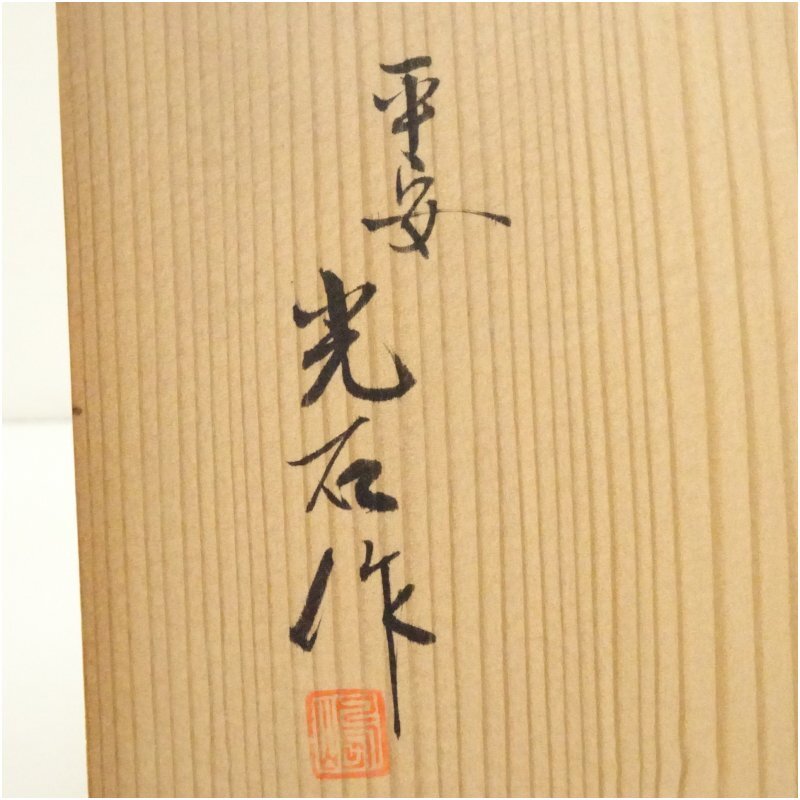 平安
光石作